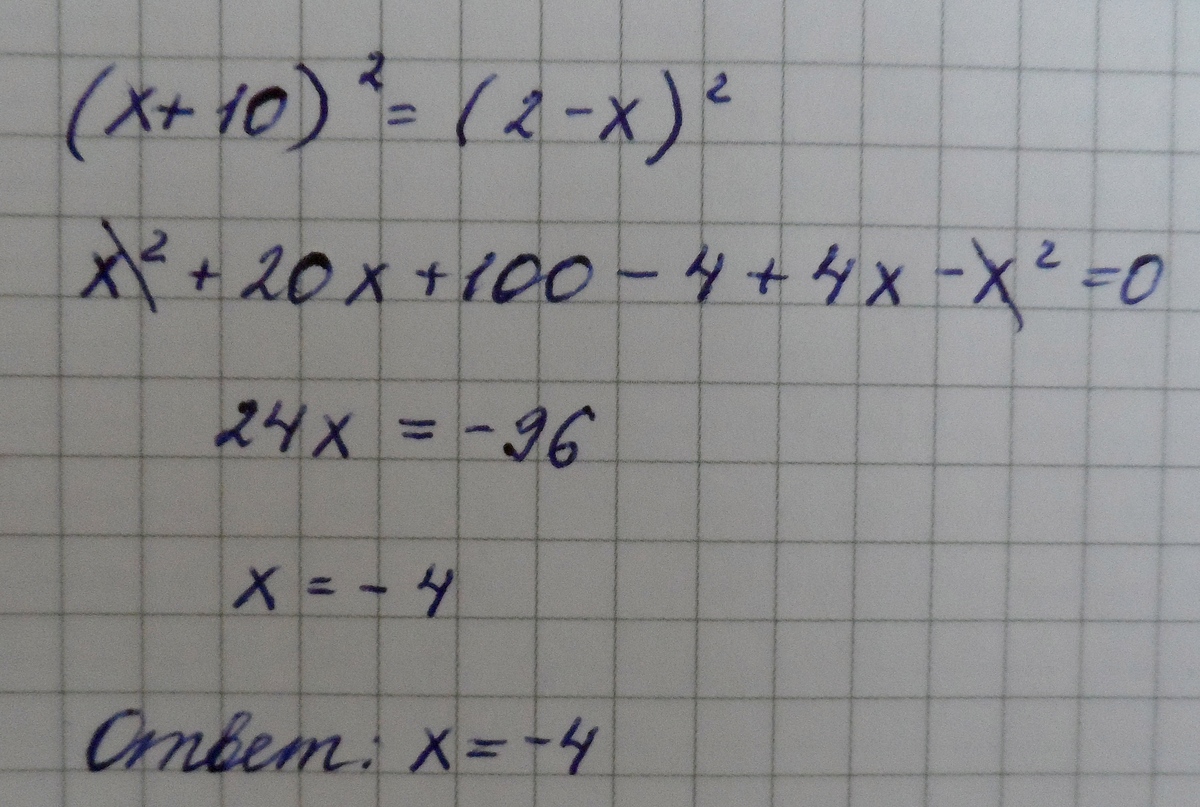 (x+10)² = (2-x)²
x² + 20x + 100 - 4 + 4x - x² = 0
24x = -96
x = -4
Ответ: x = -4